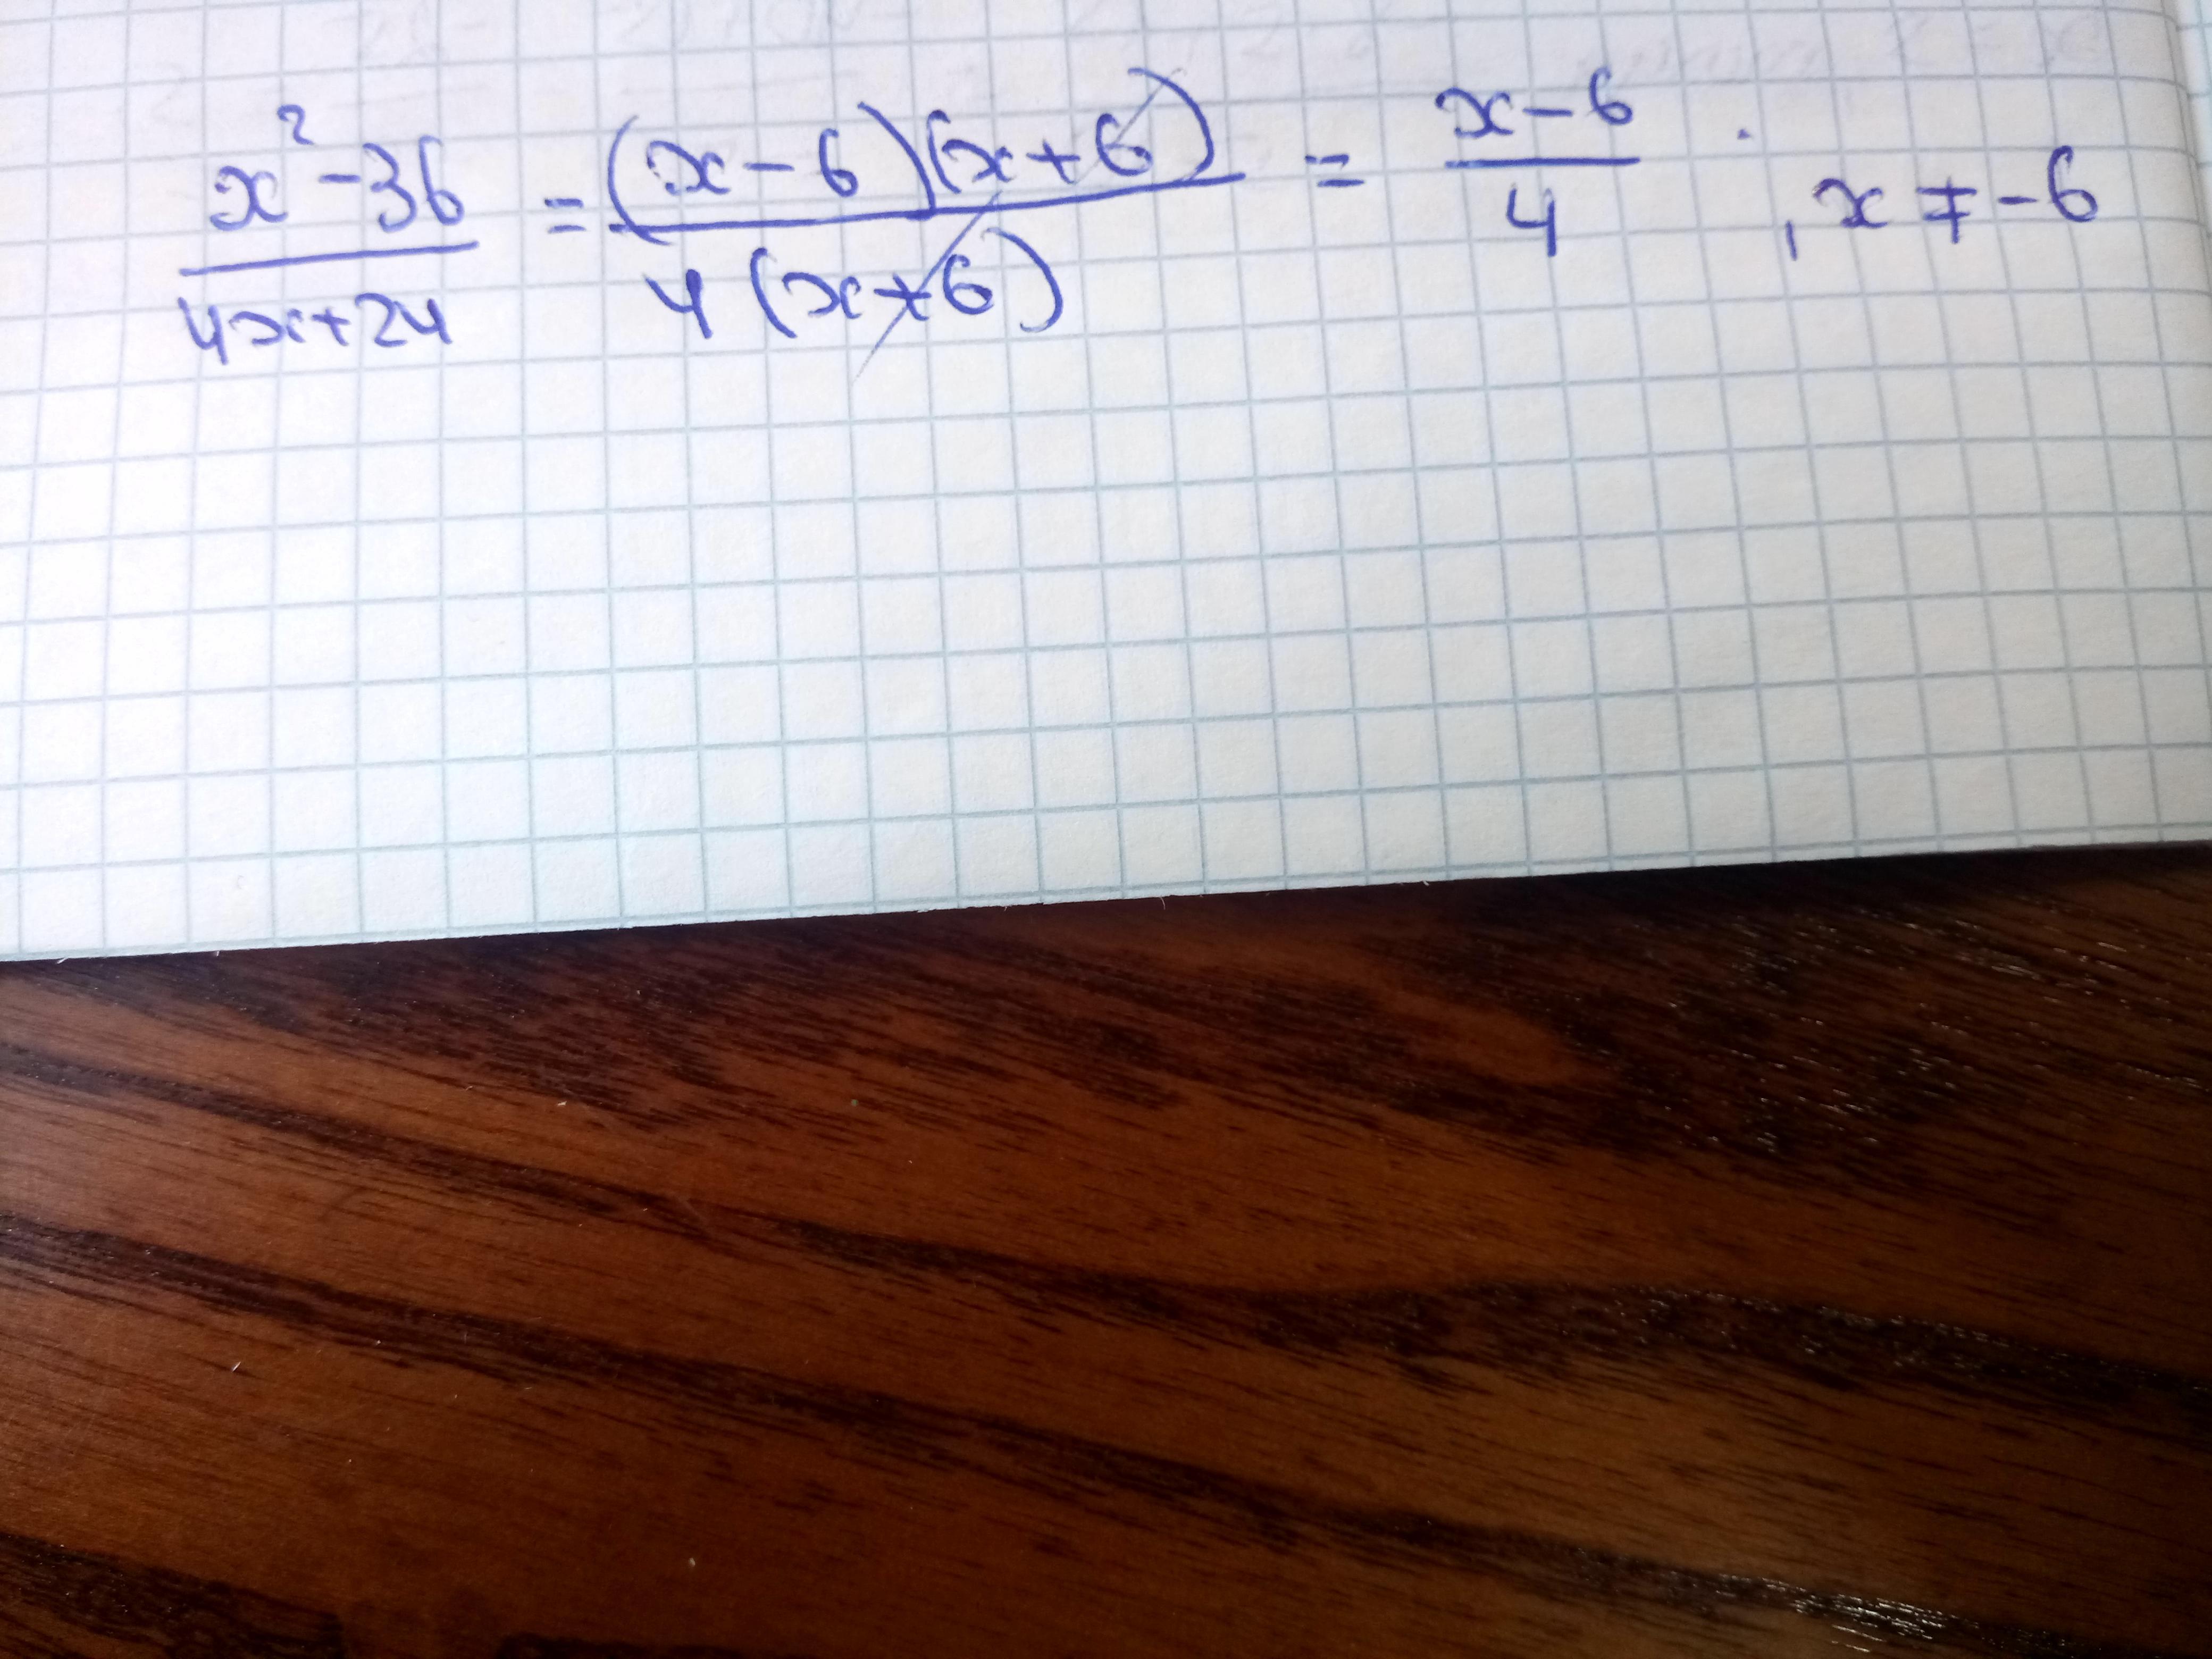 x² - 36 / 4x + 24 = (x - 6)(x + 6) / 4(x + 6) = x - 6 / 4 , x ≠ -6